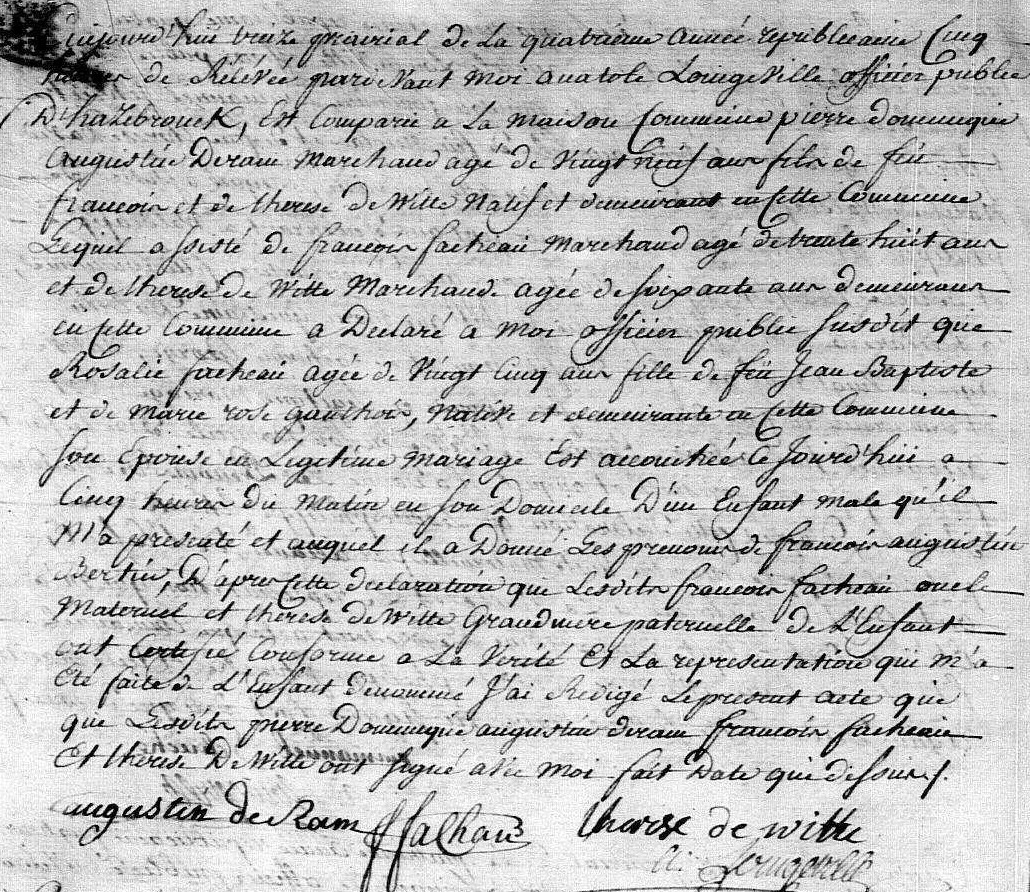 aujourd'hui treize prairial de La quatrieme année republicaine Cinq
heures de Relévée pardevant moi anatole Lougeville officier public
D'hazebrouck, Est Comparu a La maison Commune pierre dominique
augustin Deram Marchand agé de Vingt neuf ans fils de feu
francois et de therese de Witte Natif et demeurant en cette Commune
Lequel assisté de francois facheau Marchand agé de trente huit ans
et de therese de Witte Marchande agée de soixante ans demeurans
en cette Commune a Declaré a moi officier public susdit que
Rosalie facheau agée de Vingt Cinq ans fille de feu Jean Baptiste
et de Marie rose gauthois, Native et demeurante en cette Commune
son Epouse en Legitime Mariage Est accouchée Ce Jourd'hui a
Cinq heures du Matin en son Domicile D'un Enfant male qu'il
M'a presenté et auquel il a Donné Les prenoms de francois augustin
Bertin, D'apres cette declaration que Lesdits francois facheau oncle
Maternel et therese de Witte Grandmere paternelle de L'Enfant
ont Certifié Conforme a La Verité Et La representation qui m'a
été faite de L'Enfant denommé J'ai Redigé Le present acte que
que Lesdits pierre Dominique augustin deram francois facheau
Et therese De Witte ont signé avec moi fait Date que dessus
augustin de Ram ffachau therese de witte
A. Lougeville